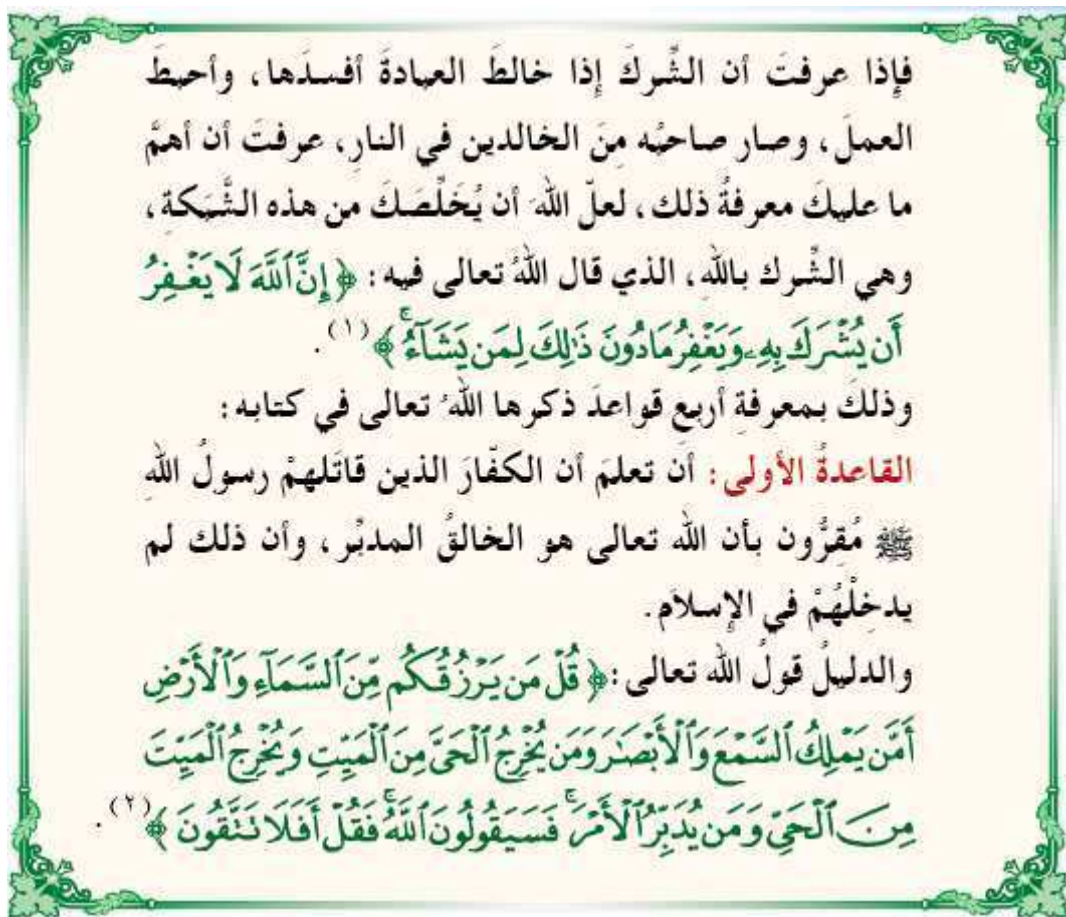 فإذا عرفتَ أن الشِّركَ إذا خالطَ العبادةَ أفسدَها، وأحبطَ
العملَ، وصار صاحبُه منَ الخالدين في النارِ، عرفتَ أن أهمَّ
ما عليكَ معرفةُ ذلك، لعلّ اللهَ أن يُخَلِّصَكَ من هذه الشَّبَكةِ،
وهي الشِّرك باللهِ، الذي قال اللهُ تعالى فيه: ﴿إِنَّ ٱللَّهَ لَا يَغْفِرُ
أَن يُشْرَكَ بِهِۦ وَيَغْفِرُ مَا دُونَ ذَٰلِكَ لِمَن يَشَآءُۚ﴾(١).
وذلكَ بمعرفةِ أربع قواعدَ ذكرها اللهُ تعالى في كتابه:
القاعدةُ الأولى: أن تعلمَ أن الكفّارَ الذين قاتَلهمْ رسولُ اللهِ
ﷺ مُقِرُّون بأن الله تعالى هو الخالقُ المدبِّر، وأن ذلك لم
يدخلْهُمْ في الإسلام.
والدليلُ قولُ الله تعالى: ﴿قُلْ مَن يَرْزُقُكُم مِّنَ ٱلسَّمَآءِ وَٱلْأَرْضِ
أَمَّن يَمْلِكُ ٱلسَّمْعَ وَٱلْأَبْصَٰرَ وَمَن يُخْرِجُ ٱلْحَىَّ مِنَ ٱلْمَيِّتِ وَيُخْرِجُ ٱلْمَيِّتَ
مِنَ ٱلْحَىِّ وَمَن يُدَبِّرُ ٱلْأَمْرَۚ فَسَيَقُولُونَ ٱللَّهُۚ فَقُلْ أَفَلَا تَتَّقُونَ﴾(٢).